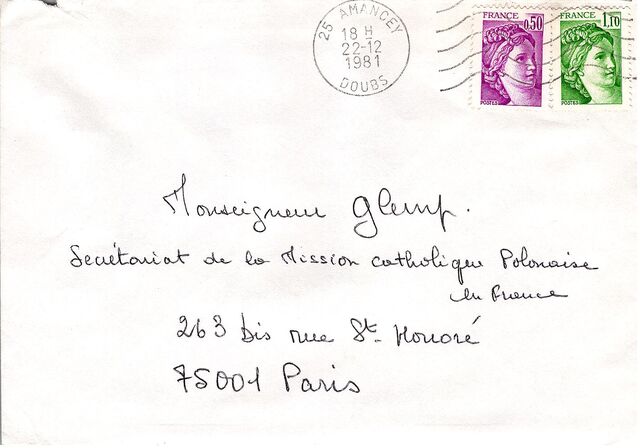 25 AMANCEY
18 H
22-12
1981
DOUBS
FRANCE 0,50
POSTES
FRANCE 1,10
POSTES
Monseigneur Glemp.
Secrétariat de la Mission catholique Polonaise
en France
263 bis rue St. Honoré
75001 Paris